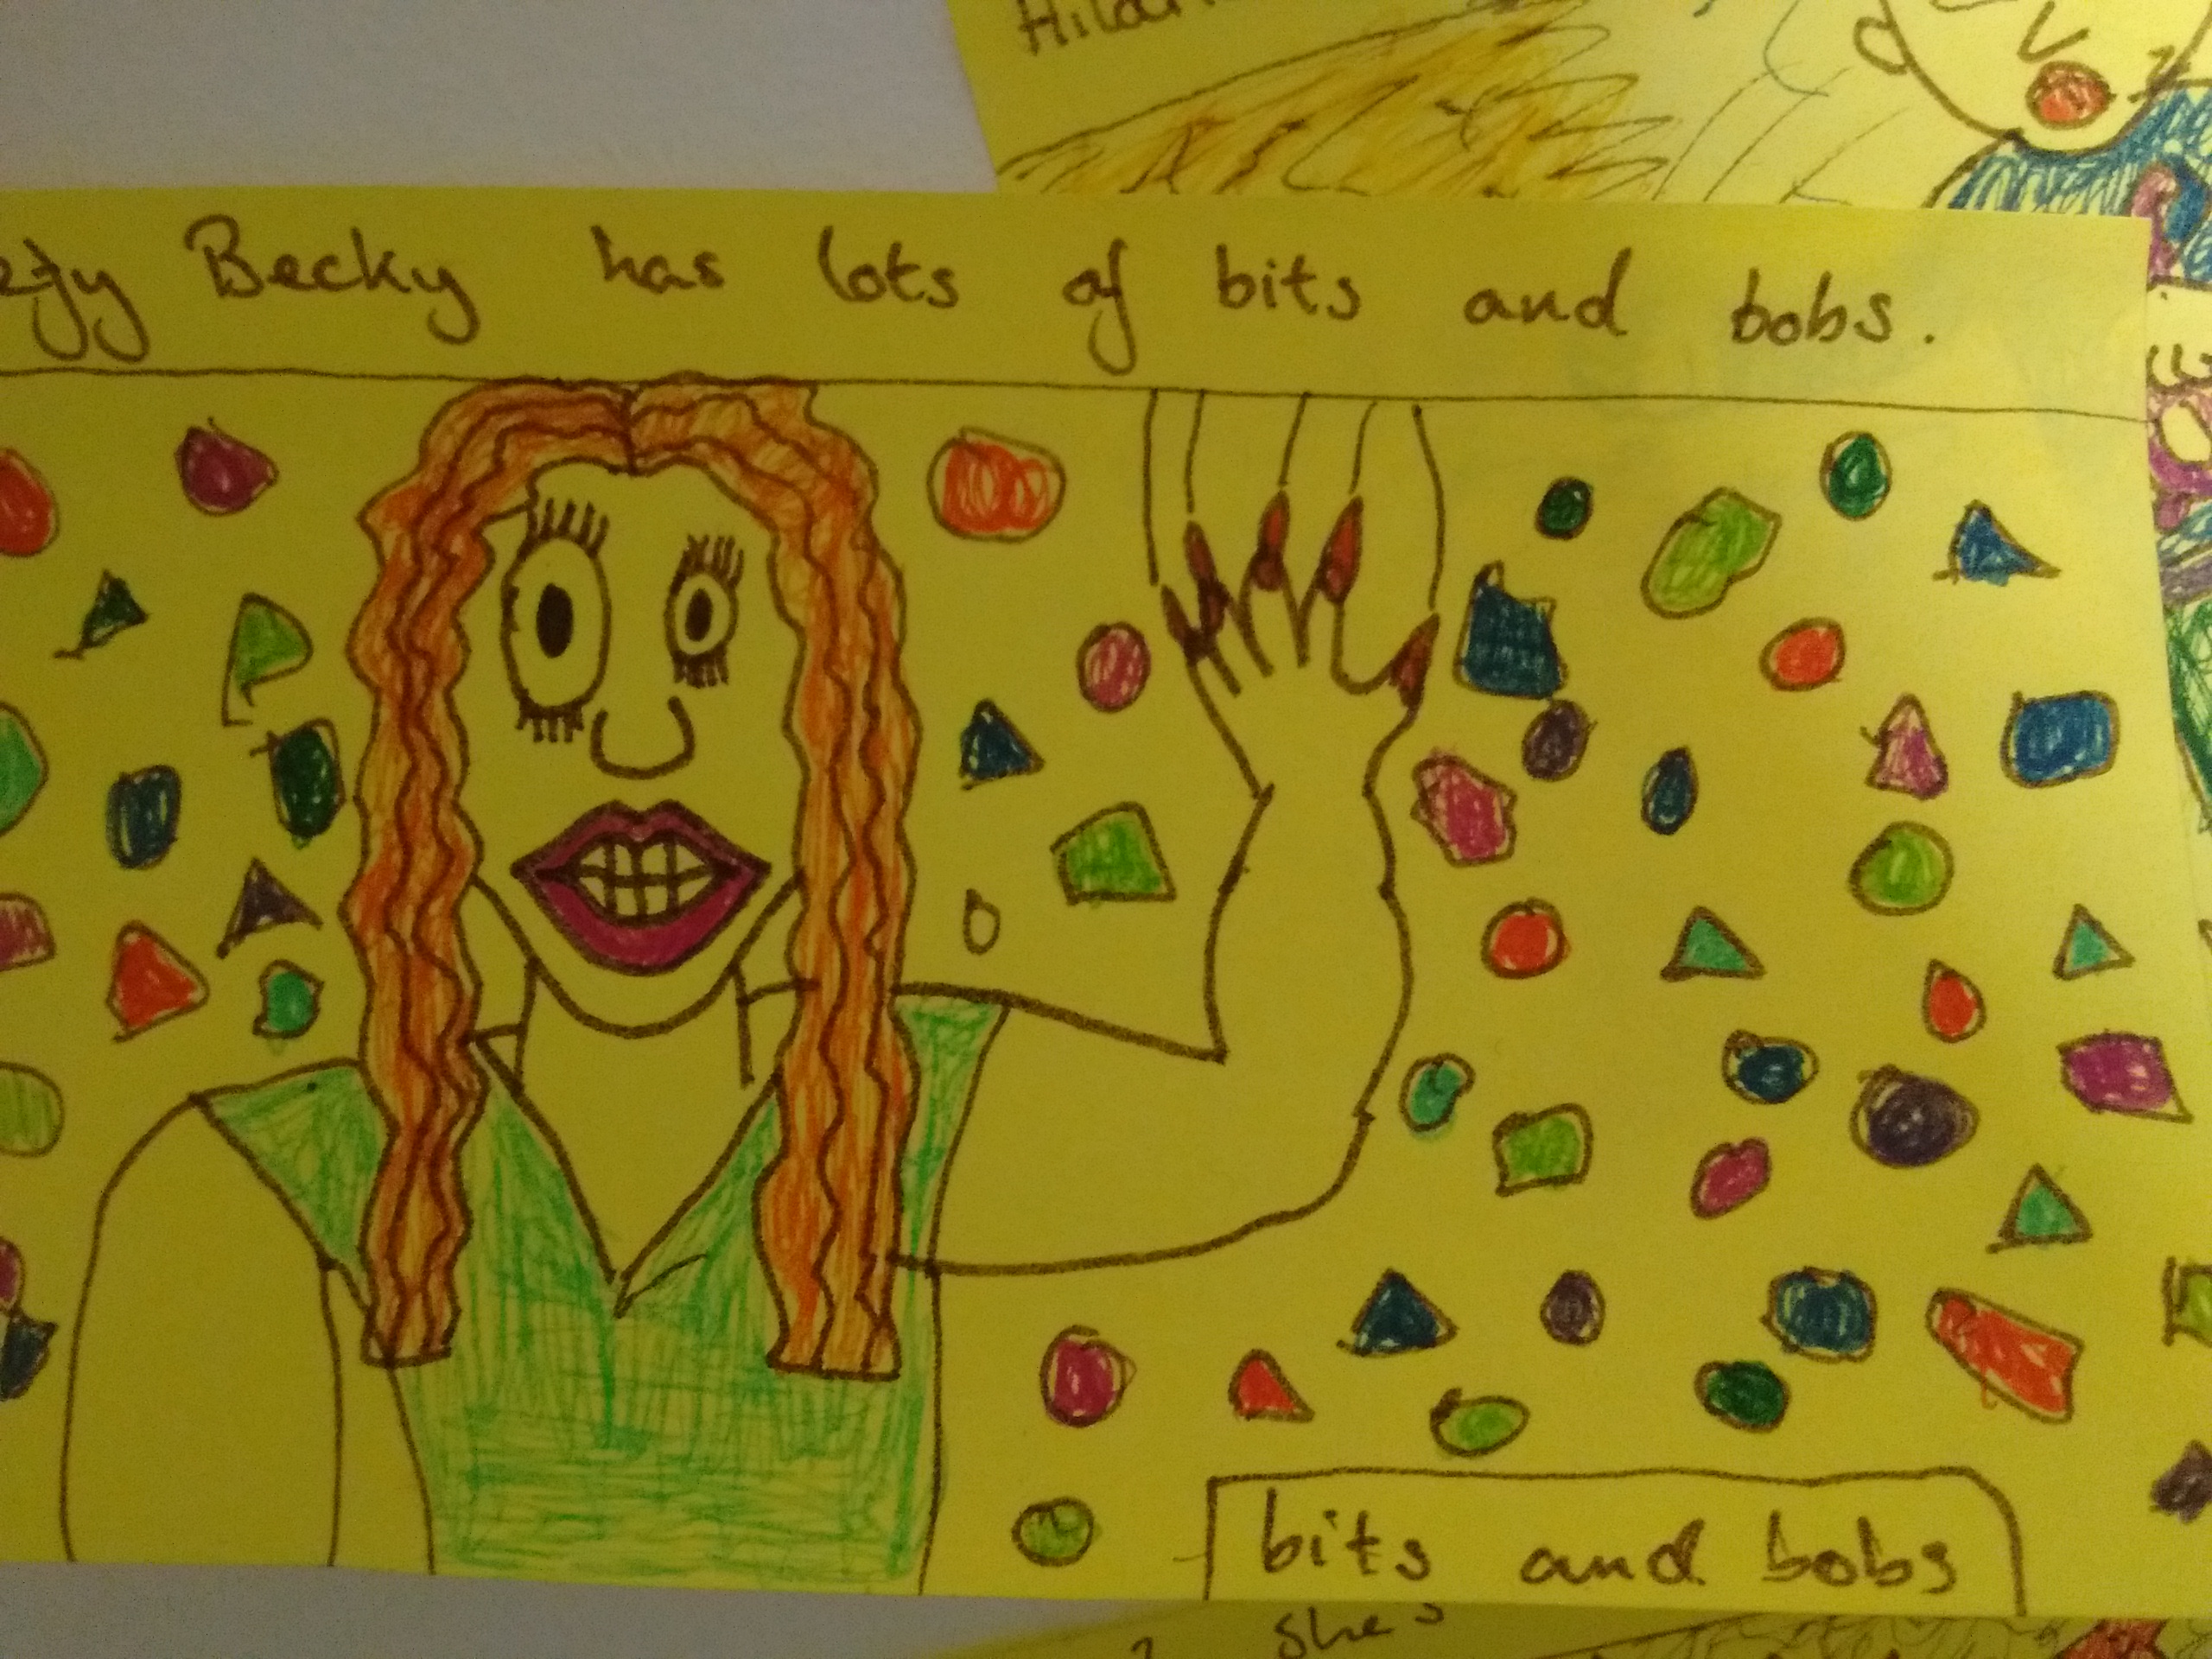 Becky has lots of bits and bobs.
bits and bobs
she's